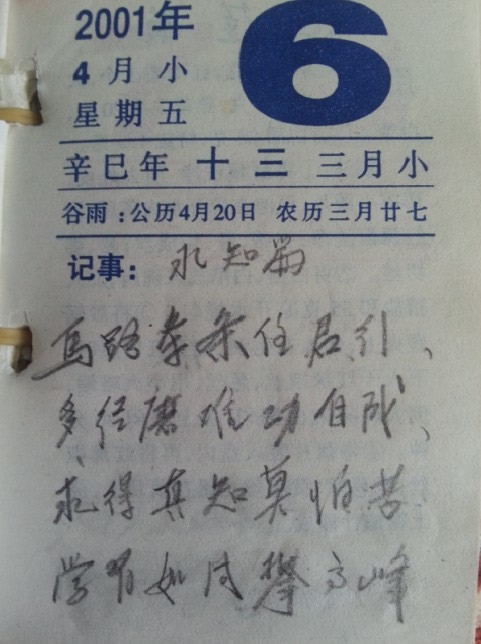 2001年
4月小
星期五
6
辛巳年 十三 三月小
谷雨:公历4月20日 农历三月廿七
记事: 求知篇
马路李条任君引、
多经磨难功自成、
求得真知莫怕苦
学习如同攀高峰